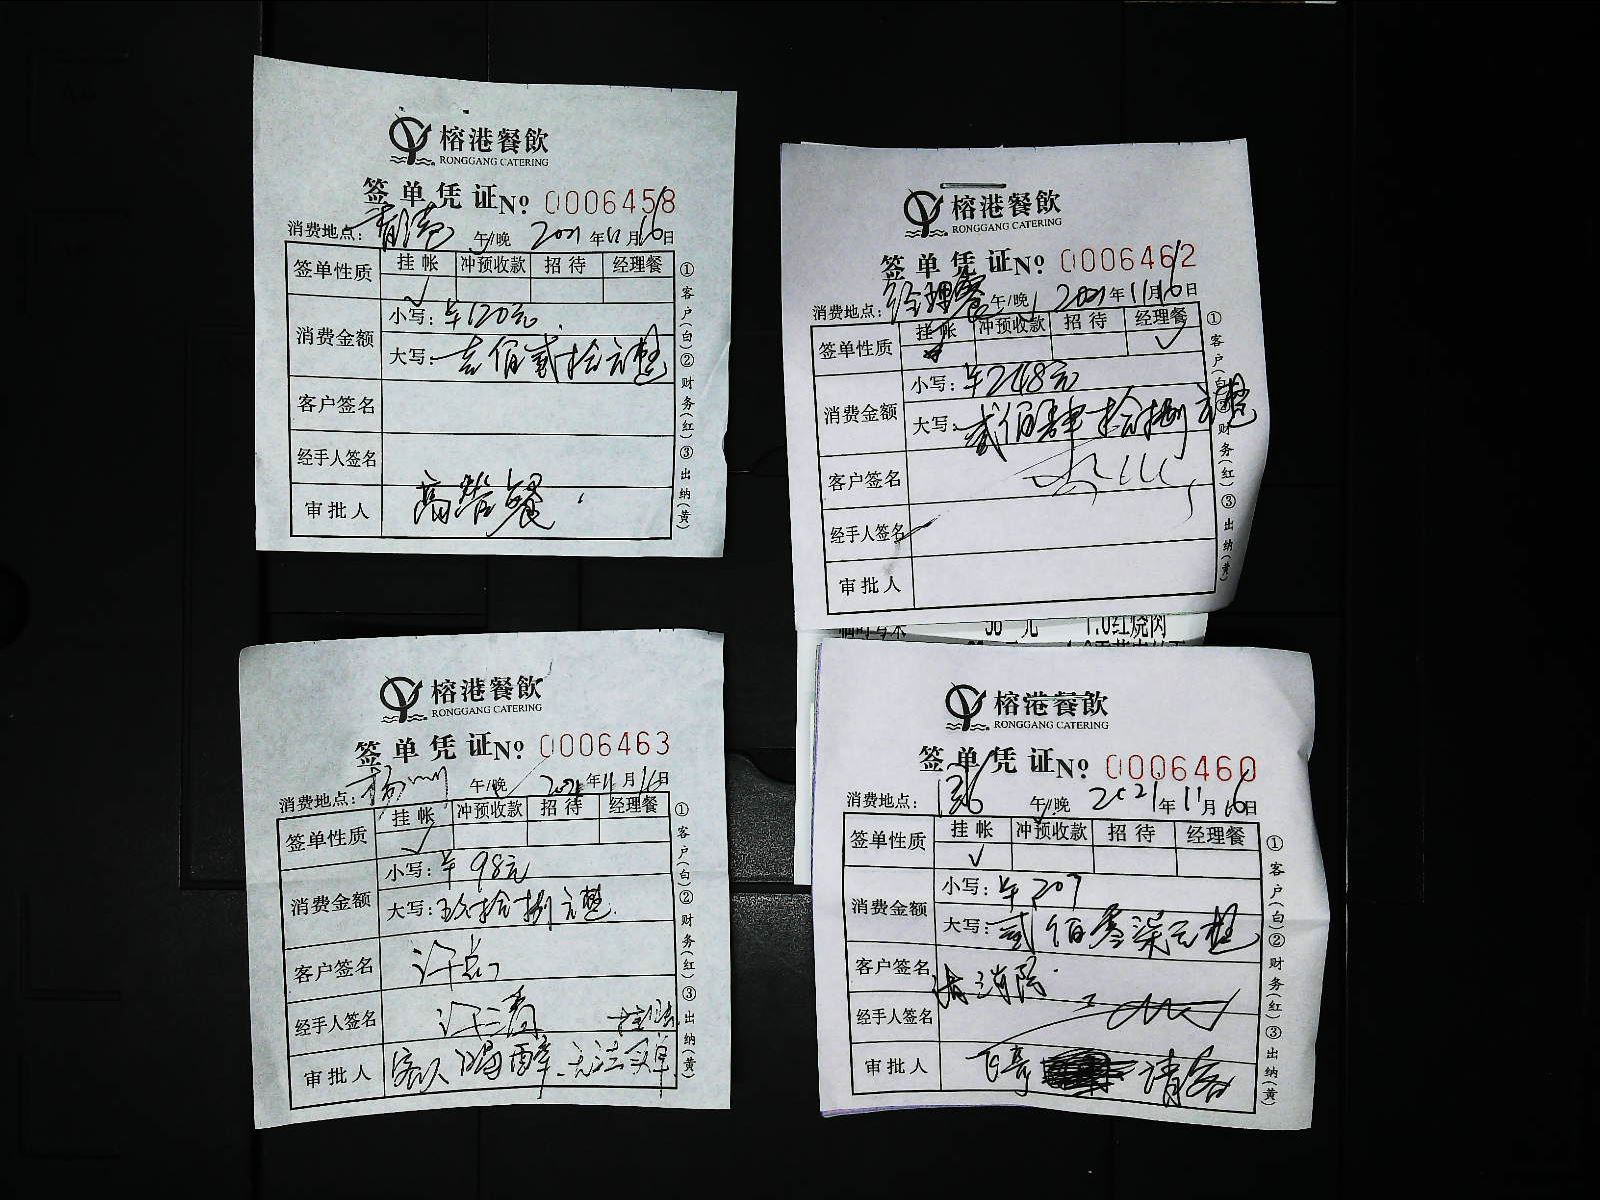 榕港餐飲
RONGGANG CATERING
签单凭证 No 0006458
消费地点: 午/晚 2021年11月16日
签单性质 挂帐 冲预收款 招待 经理餐
√
消费金额 小写: ¥120元
大写: 壹佰贰拾元整
客户签名
经手人签名
审批人 高管餐
①客户(白)②财务(红)③出纳(黄)
榕港餐飲
RONGGANG CATERING
签单凭证 No 0006462
消费地点: 经理餐 午/晚 2021年11月16日
签单性质 挂帐 冲预收款 招待 经理餐
√
消费金额 小写: ¥248元
大写: 贰佰肆拾捌元整
客户签名
经手人签名
审批人
①客户(白)②财务(红)③出纳(黄)
36 元 1.0红烧肉
榕港餐飲
RONGGANG CATERING
签单凭证 No 0006463
消费地点: 扬州 午/晚 2021年11月16日
签单性质 挂帐 冲预收款 招待 经理餐
√
消费金额 小写: ¥98元
大写: 玖拾捌元整
客户签名
经手人签名 挂账
审批人 客人喝醉、无法买单
①客户(白)②财务(红)③出纳(黄)
榕港餐飲
RONGGANG CATERING
签单凭证 No 0006460
消费地点: 午/晚 2021年11月16日
签单性质 挂帐 冲预收款 招待 经理餐
√
消费金额 小写: ¥207
大写: 贰佰零柒元整
客户签名 请消防
经手人签名
审批人 请客
①客户(白)②财务(红)③出纳(黄)